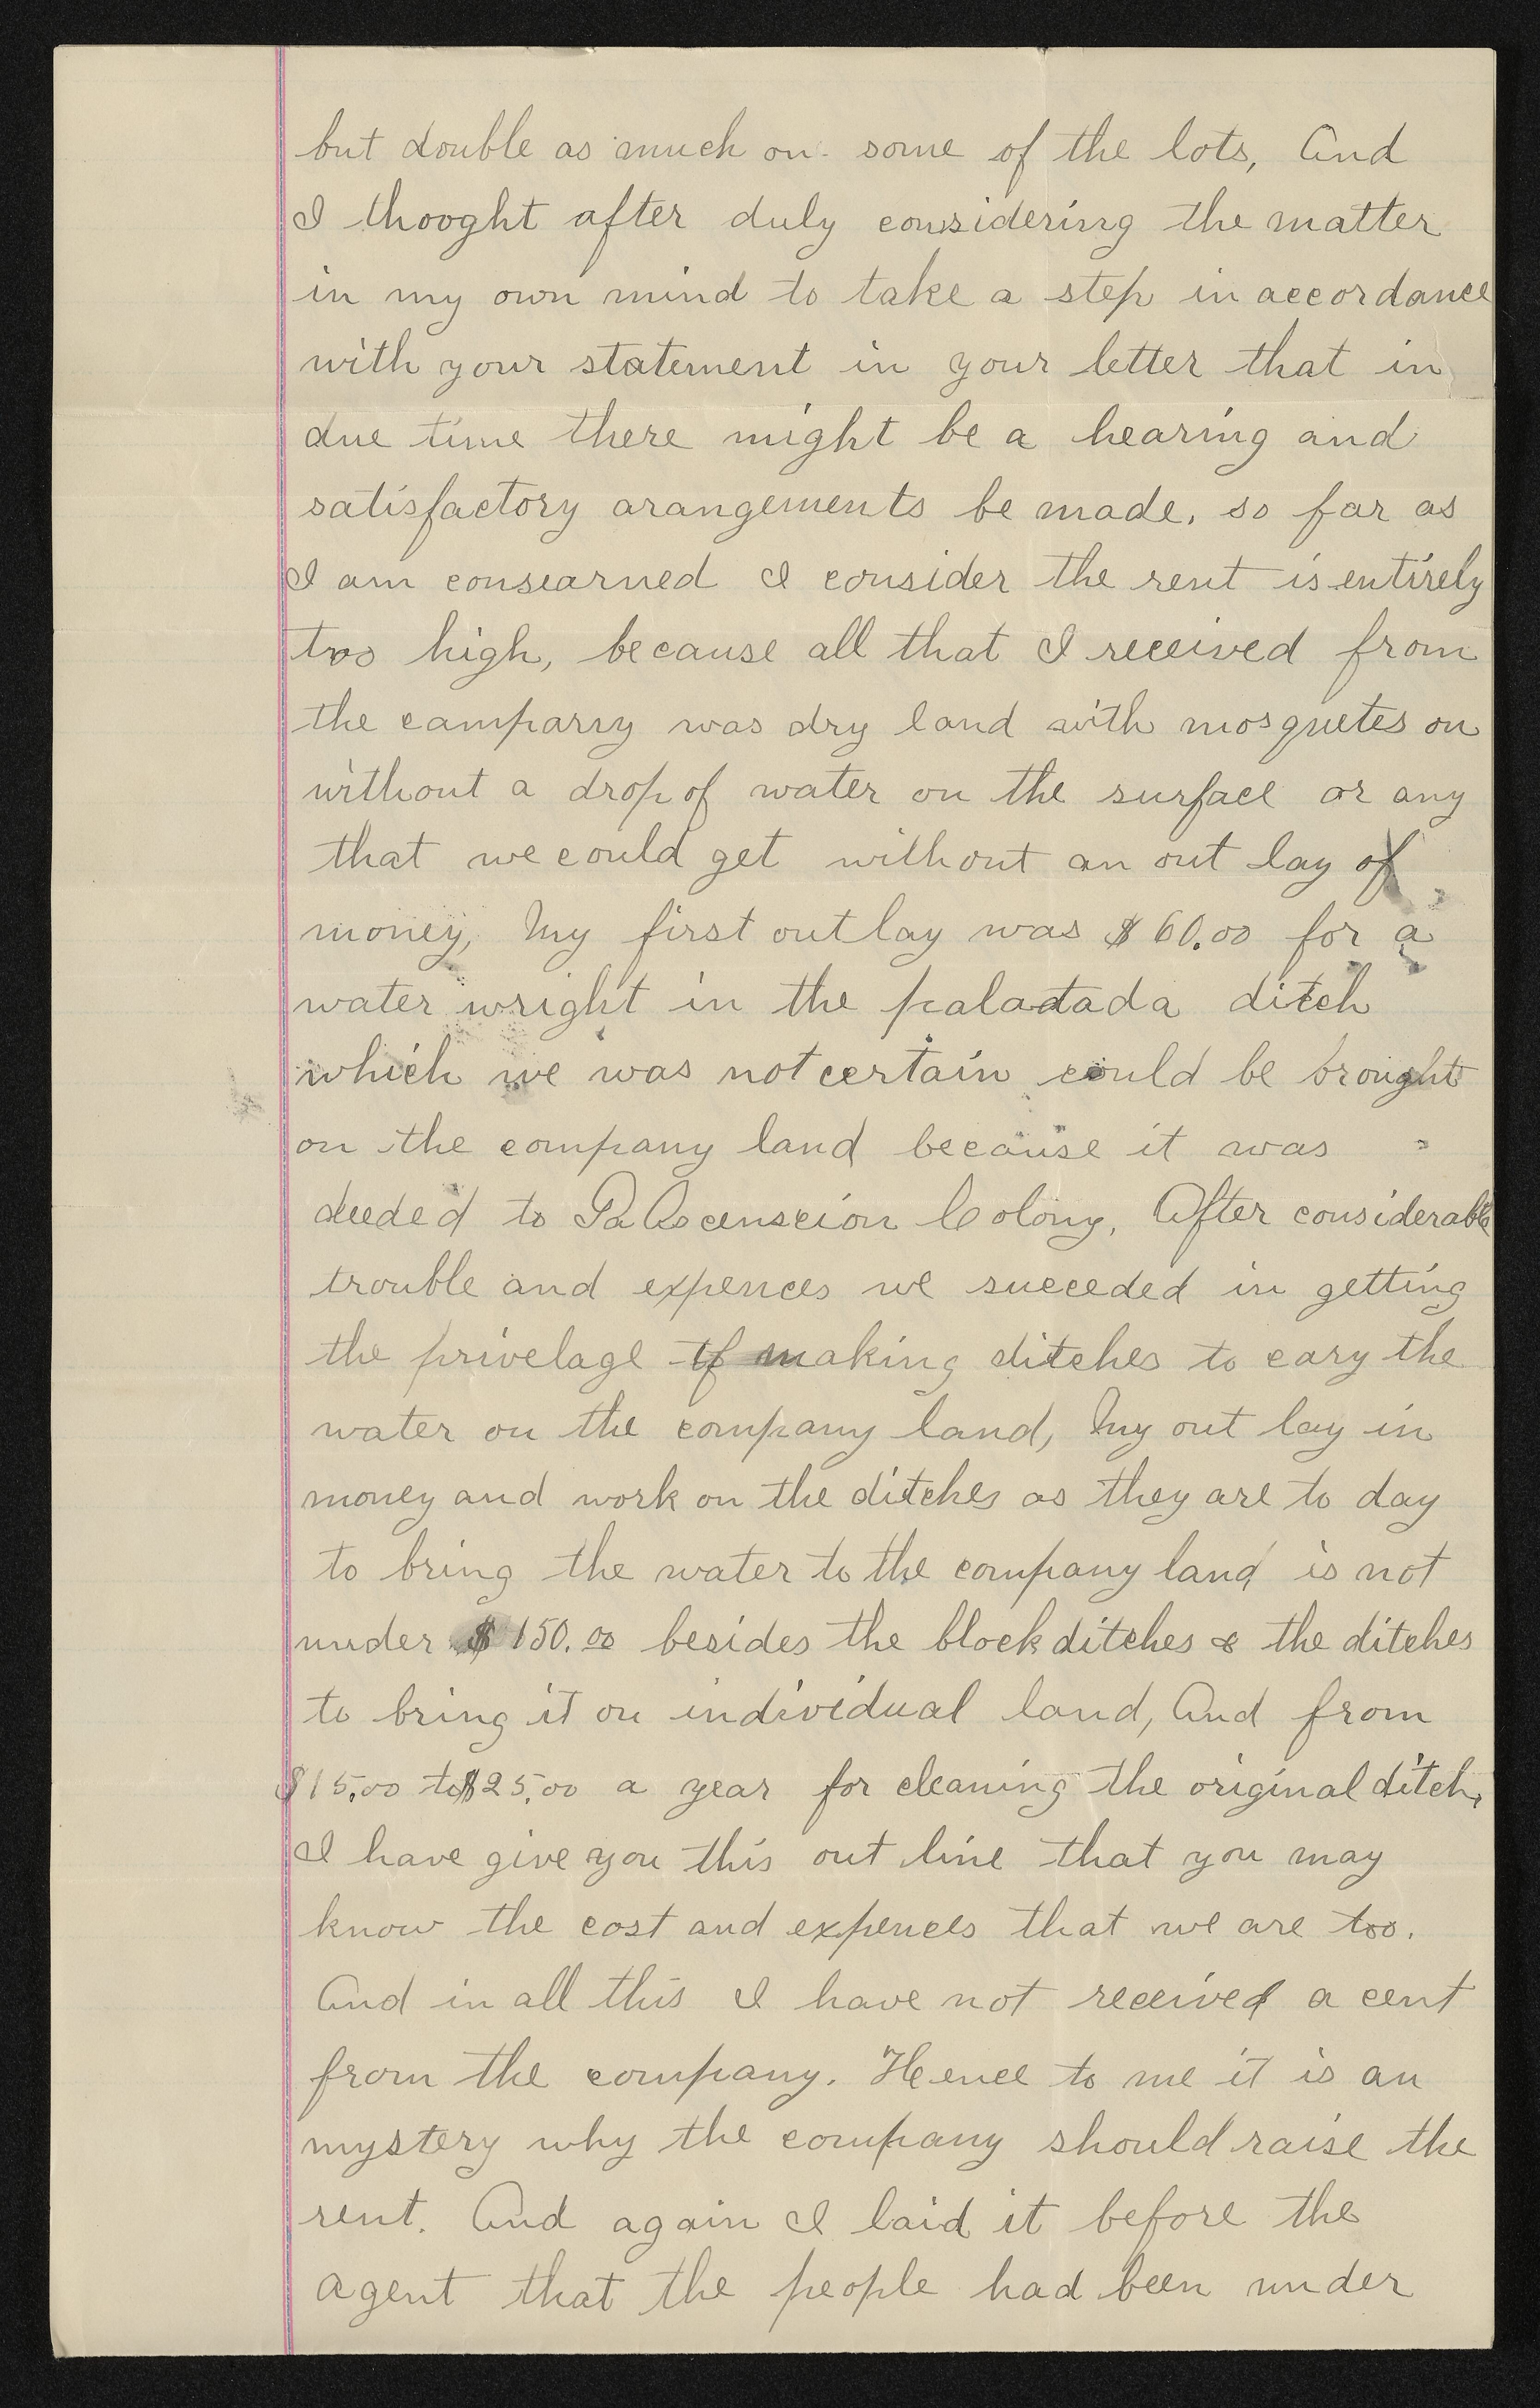 but double as much on some of the lots, And
I thooght after duly considering the matter
in my own mind to take a step in accordance
with your statement in your letter that in
due time there might be a hearing and
satisfactory arangements be made, so far as
I am consearned I consider the rent is entirely
too high, because all that I received from
the campany was dry land with mosquetes on
without a drop of water on the surface or any
that we could get without an out lay of
money, My first outlay was $60.00 for a
water wright in the paladada ditch
which we was not certain could be brought
on the company land because it was
deeded to Pa Ascenscion Colony. After considerable
trouble and expences we succeded in getting
the privelage of making ditches to cary the
water on the company land, My out lay in
money and work on the ditches as they are to day
to bring the water to the company land is not
under $150.00 besides the block ditches & the ditches
to bring it on individual land, And from
$15.00 to $25.00 a year for cleaning the original ditch,
I have give you this out line that you may
know the cost and expences that we are too.
And in all this I have not received a cent
from the company. Hence to me it is an
mystery why the company should raise the
rent. And again I laid it before the
agent that the people had been under